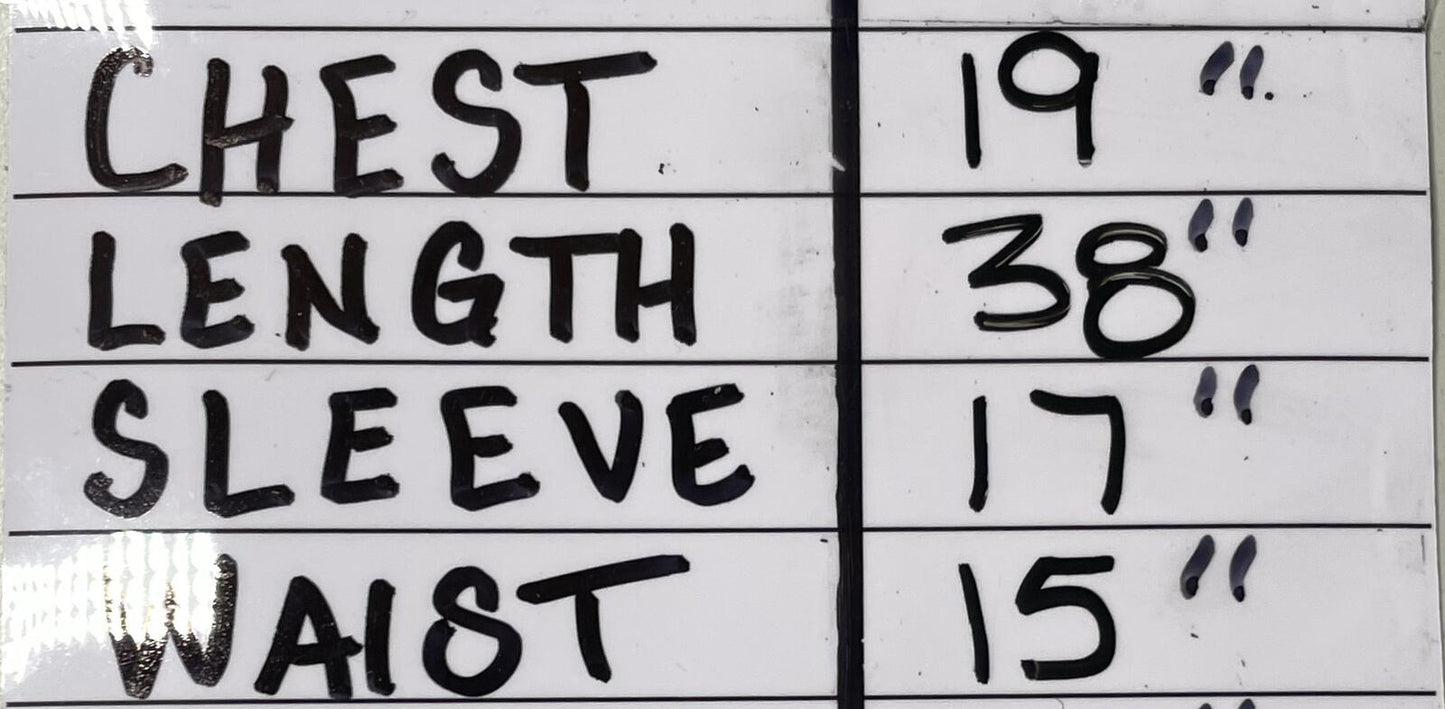 CHEST 19 ".
LENGTH 38"
SLEEVE 17 "
WAIST 15 "